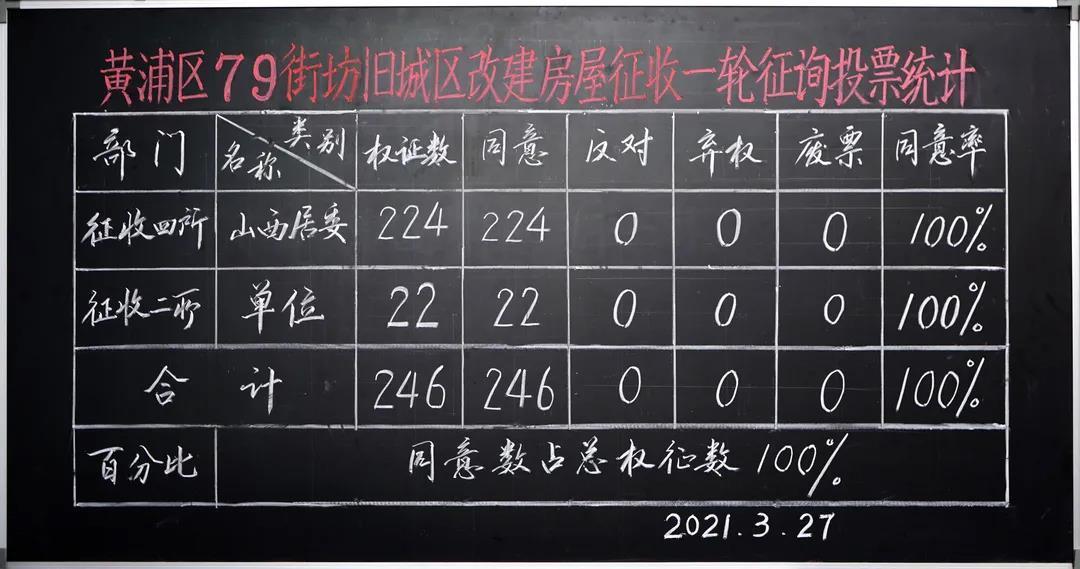 黄浦区79街坊旧城区改建房屋征收一轮征询投票统计
部门 类别 名称 权证数 同意 反对 弃权 废票 同意率
征收四所 山西居委 224 224 0 0 0 100%
征收二所 单位 22 22 0 0 0 100%
合计 246 246 0 0 0 100%
百分比 同意数占总权征数 100%
2021.3.27